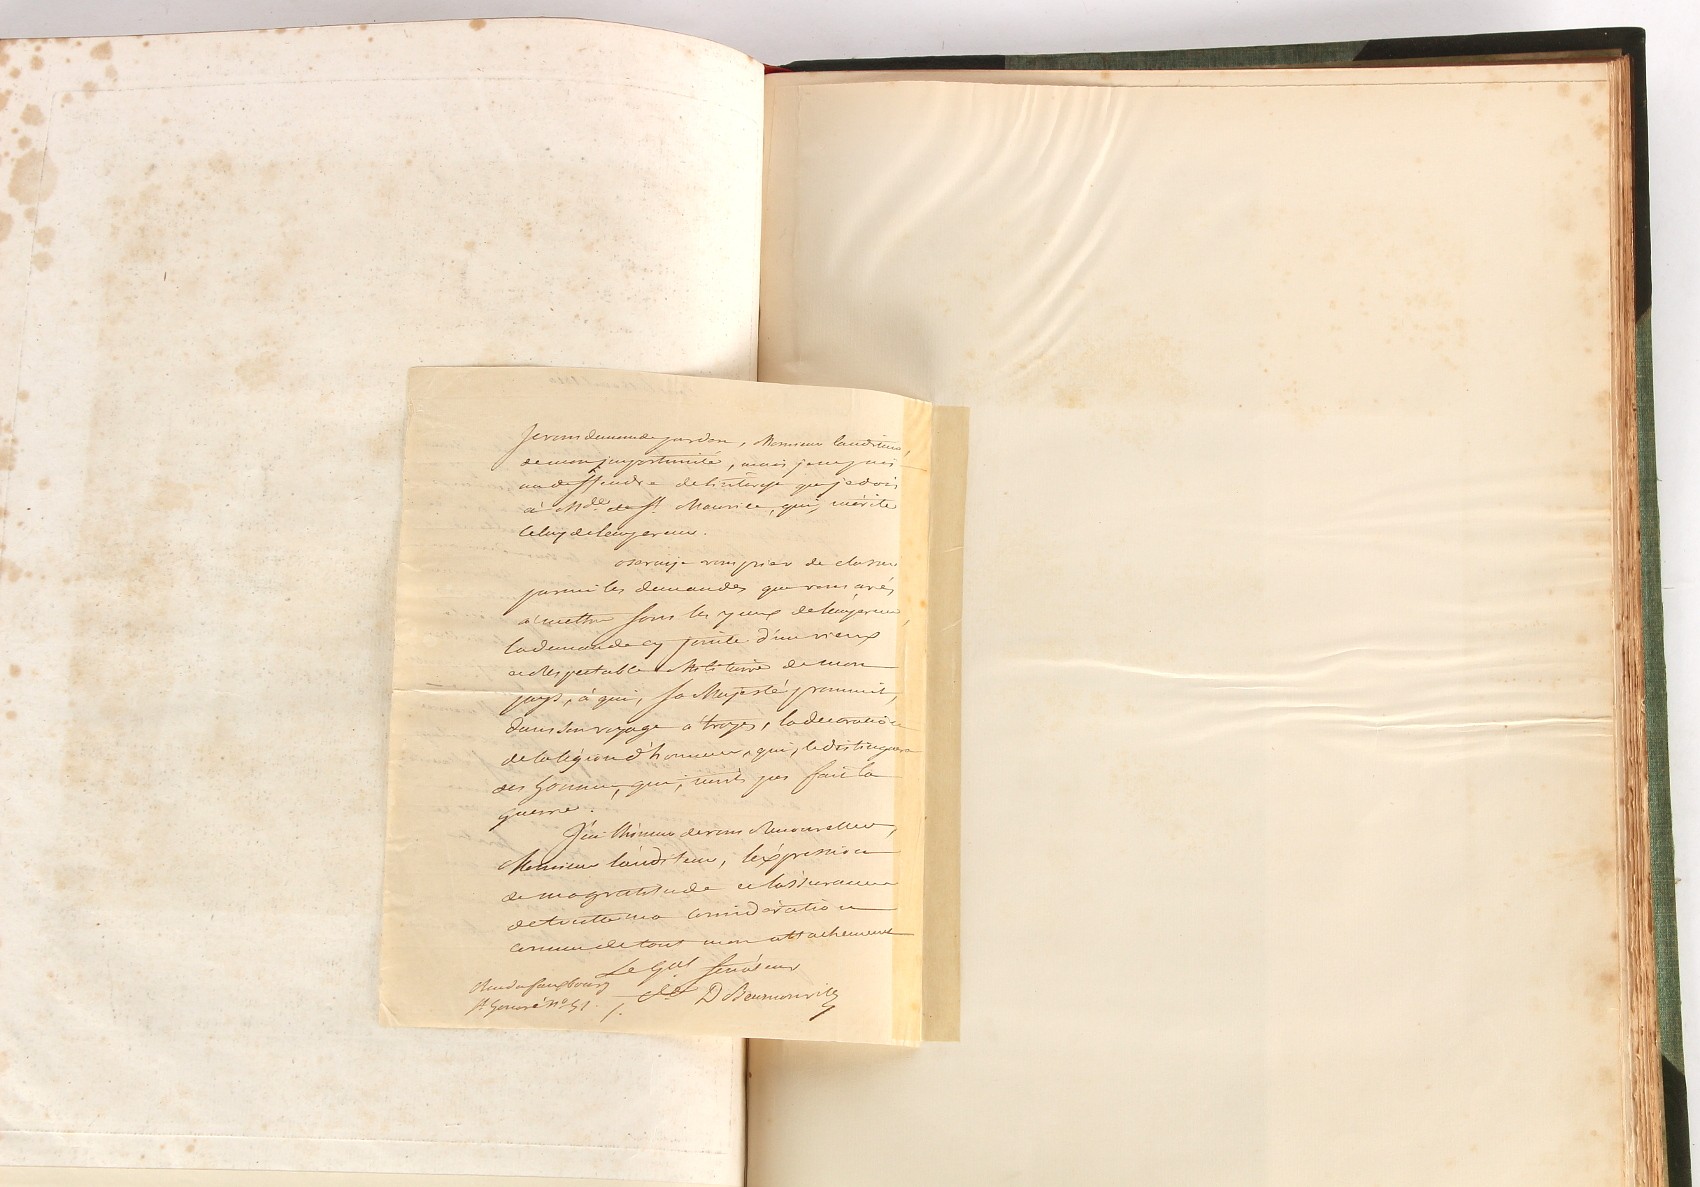 Je vous demande pardon, Monsieur l'auditeur,
de mon importunité, mais je ne puis
me deffendre de l'interest que je dois
à Mde. de St Maurice, qui, mérite
celuy de l'empereur.
oserai-je vous prier de classer
parmi les demandes que vous avés
à mettre sous les yeux de l'empereur,
la demande cy jointe d'un vieux
et respectable Militaire de mon
pays, à qui, sa Majesté promit,
dans son voyage a troyes, la décoration
de la légion d'honneur, qui, le distinguera
des hommes, qui, n'ont pas fait la
guerre.
J'ai l'honneur de vous Renouveller,
Monsieur l'auditeur, l'expression
de ma gratitude et l'assurance
de toute ma considération
comme de tout mon attachement
Le Gal Sénateur
Cte D Beurnonville
Rue du fauxbourg
St honoré no 51.